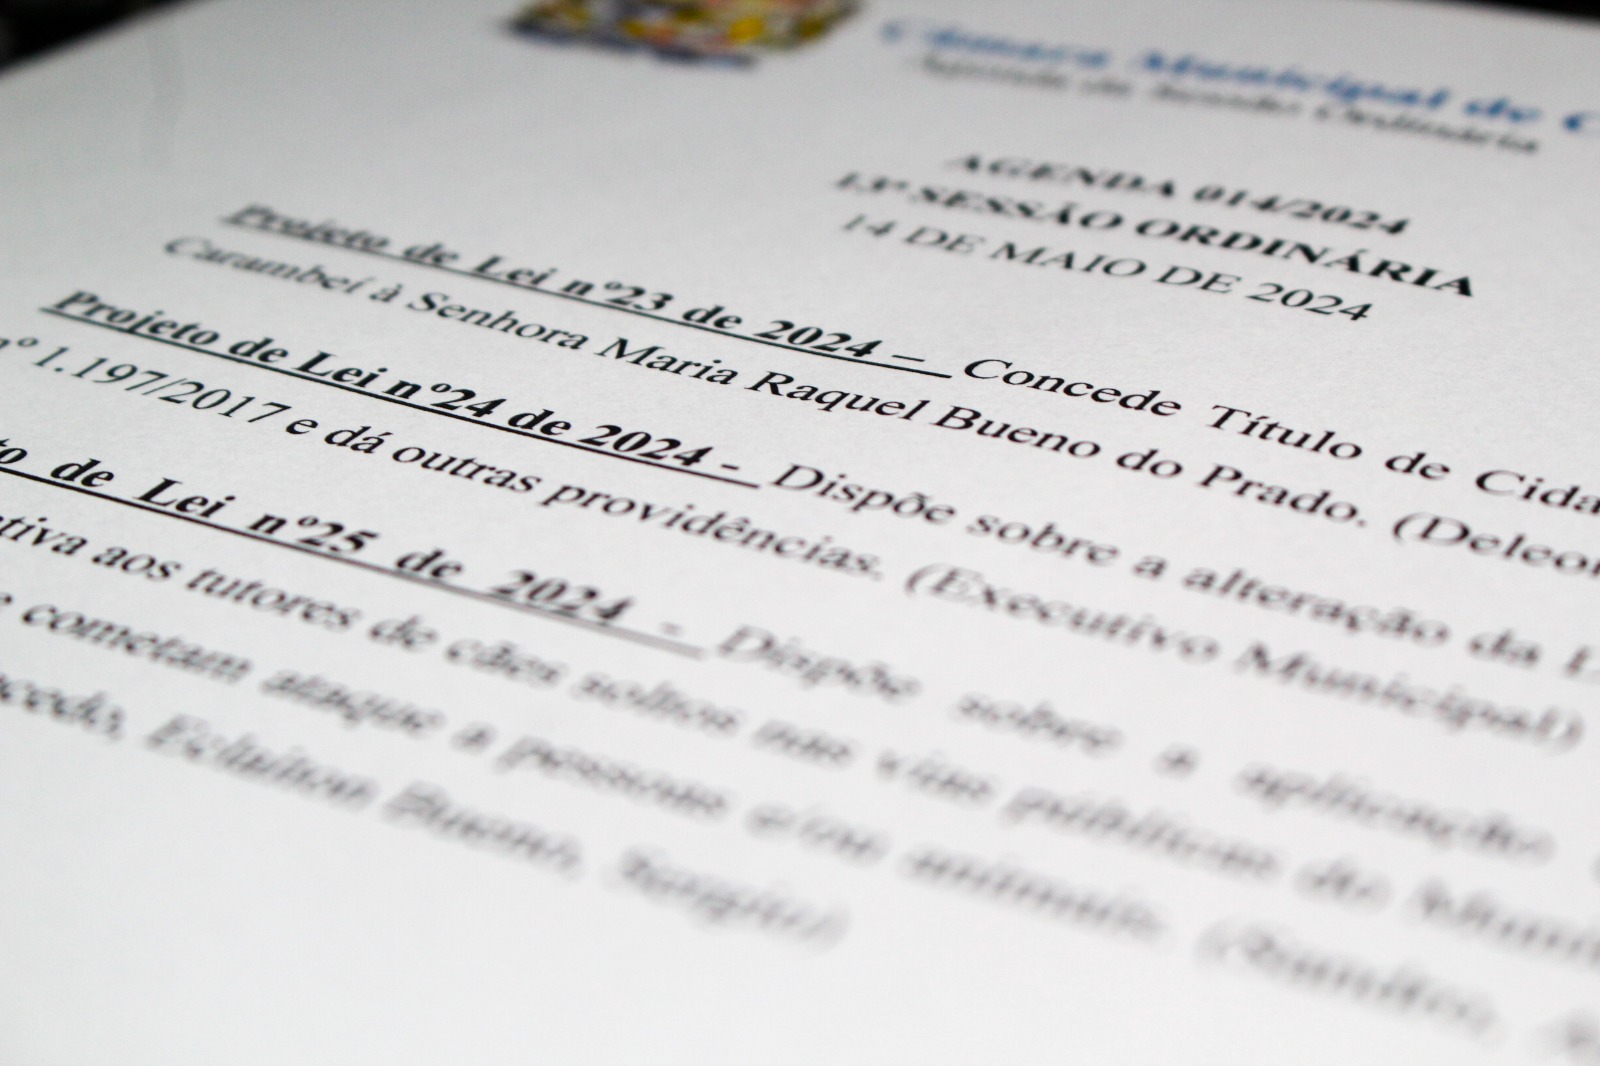 Câmara Municipal de C
Agenda da Sessão Ordinária
AGENDA 014/2024
13ª SESSÃO ORDINÁRIA
14 DE MAIO DE 2024
Projeto de Lei nº23 de 2024 – Concede Título de Cida
Carambeí à Senhora Maria Raquel Bueno do Prado. (Deleon
Projeto de Lei nº24 de 2024 - Dispõe sobre a alteração da L
nº 1.197/2017 e dá outras providências. (Executivo Municipal)
to de Lei nº25 de 2024 - Dispõe sobre a aplicação
ativa aos tutores de cães soltos nas vias públicas do Muni
e cometam ataque a pessoas e/ou animais.
cedo, Bueno, Sergio)